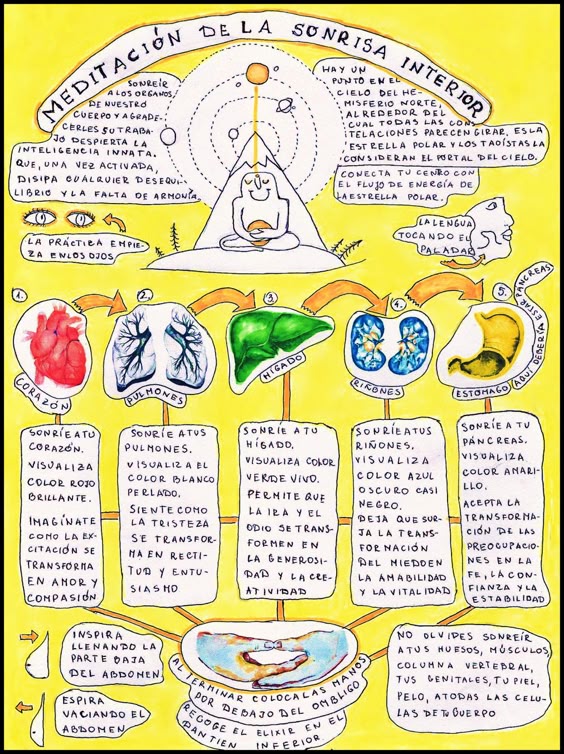 MEDITACIÓN DE LA SONRISA INTERIOR
SONREÍR
A LOS ORGANOS
DE NUESTRO
CUERPO Y AGRADE-
CERLES SU TRABA-
JO DESPIERTA LA
INTELIGENCIA INNATA.
QUE, UNA VEZ ACTIVADA,
DISIPA CUALQUIER DESEQUI-
LIBRIO Y LA FALTA DE ARMONÍA.
HAY UN
PUNTO EN EL
CIELO DEL HE-
MISFERIO NORTE,
ALREDEDOR DEL
CUAL TODAS LAS CONS-
TELACIONES PARECEN GIRAR, ES LA
ESTRELLA POLAR Y LOS TAOÍSTAS LA
CONSIDERAN EL PORTAL DEL CIELO.
CONECTA TU CENTRO CON
EL FLUJO DE ENERGÍA DE
LA ESTRELLA POLAR.
LA PRÁCTICA EMPIE-
ZA EN LOS OJOS
LA LENGUA
TOCANDO EL
PALADAR
1.
CORAZÓN
2.
PULMONES
3.
HÍGADO
4.
RIÑONES
5.
ESTOMAGO
AQUÍ DEBERÍA ESTAR PÁNCREAS
SONRÍE A TU
CORAZÓN.
VISUALIZA
COLOR ROJO
BRILLANTE.
IMAGÍNATE
COMO LA EX-
CITACIÓN SE
TRANSFORMA
EN AMOR Y
COMPASIÓN
SONRÍE A TUS
PULMONES.
VISUALIZA EL
COLOR BLANCO
PERLADO.
SIENTE COMO
LA TRISTEZA
SE TRANSFOR-
MA EN RECTI-
TUD Y ENTU-
SIASMO
SONRÍE A TU
HÍGADO.
VISUALIZA COLOR
VERDE VIVO.
PERMITE QUE
LA IRA Y EL
ODIO SE TRANS-
FORMEN EN
LA GENEROSI-
DAD Y LA CRE-
ATIVIDAD
SONRÍE A TUS
RIÑONES.
VISUALIZA
COLOR AZUL
OSCURO CASI
NEGRO.
DEJA QUE SUR-
JA LA TRANS-
FORMACIÓN
DEL MIEDO EN
LA AMABILIDAD
Y LA VITALIDAD
SONRÍE A TU
PÁNCREAS.
VISUALIZA
COLOR AMARI-
LLO.
ACEPTA LA
TRANSFORMA-
CIÓN DE LAS
PREOCUPACIO-
NES EN LA
FE, LA CON-
FIANZA Y LA
ESTABILIDAD
INSPIRA
LLENANDO LA
PARTE BAJA
DEL ABDOMEN
ESPIRA
VACIANDO EL
ABDOMEN
AL TERMINAR COLOCA LAS MANOS
POR DEBAJO DEL OMBLIGO
RECOGE EL ELIXIR EN EL
DANTIEN INFERIOR
NO OLVIDES SONREÍR
A TUS HUESOS, MÚSCULOS,
COLUMNA VERTEBRAL,
TUS GENITALES, TU PIEL,
PELO, A TODAS LAS CELU-
LAS DE TU CUERPO